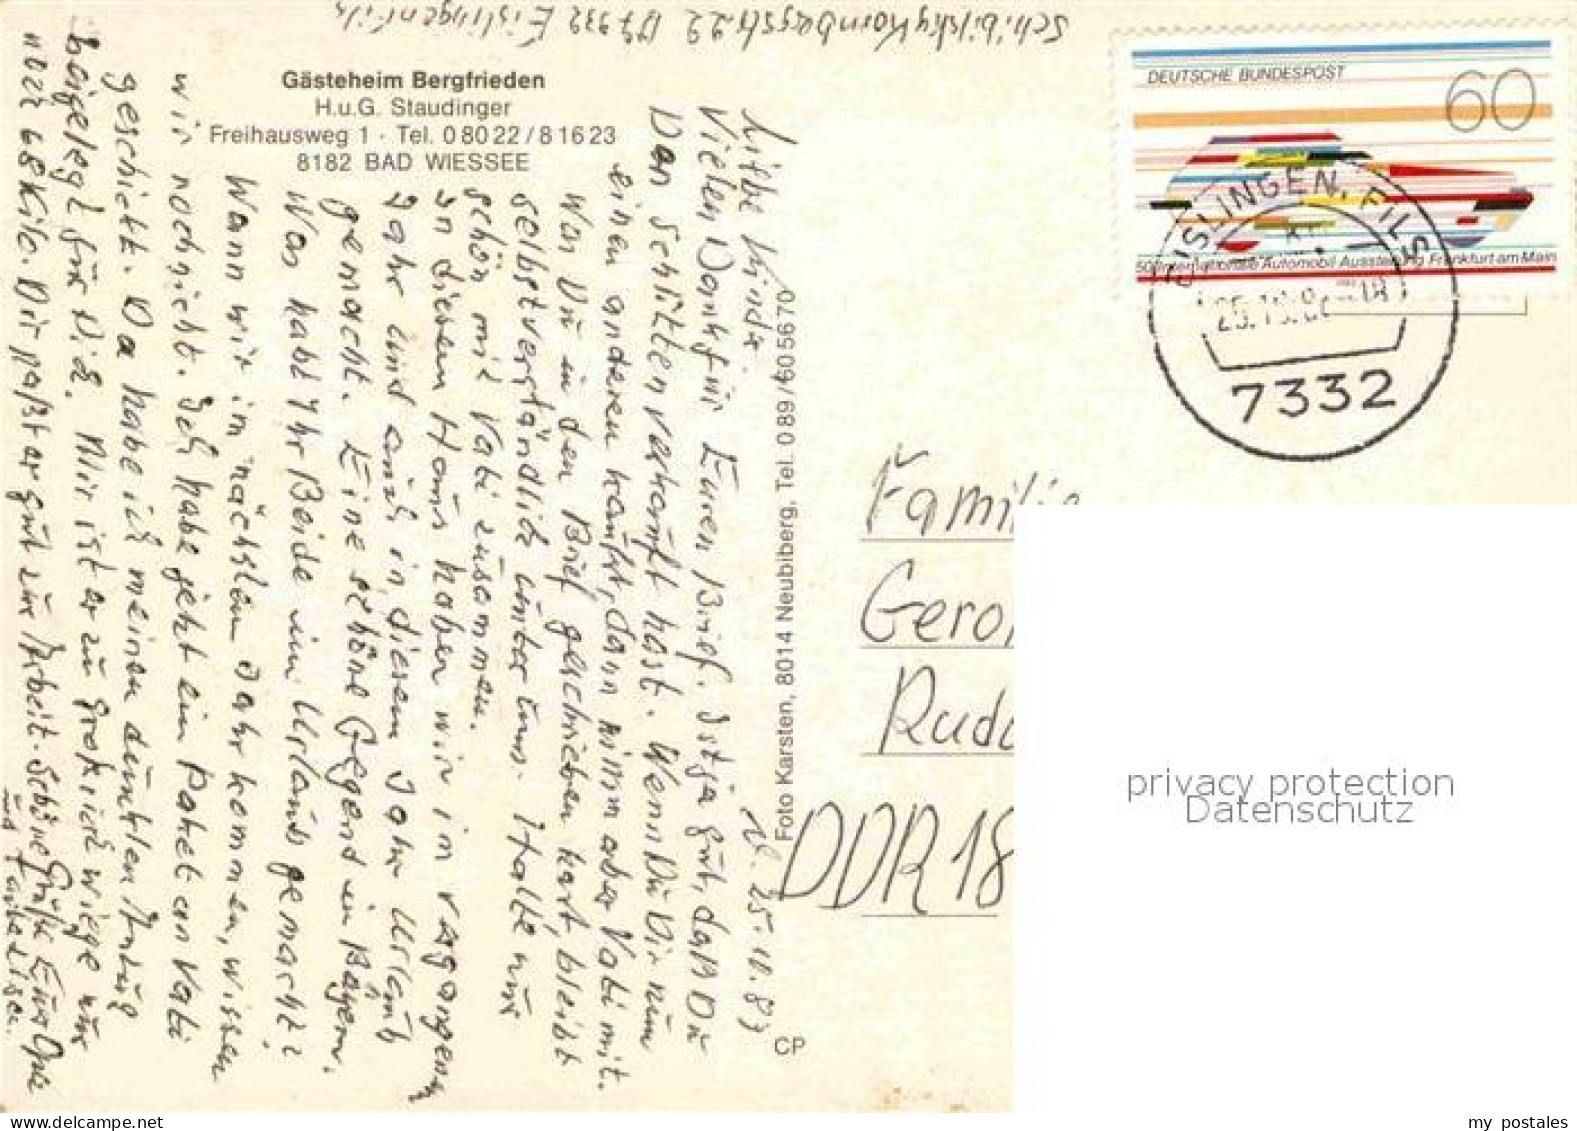 Schibilsky Hornbergstr. 22 D 7332 Eislingen Fils
Gästeheim Bergfrieden
H.u.G. Staudinger
Freihausweg 1 · Tel. 0 80 22 / 8 16 23
8182 BAD WIESSEE
DEUTSCHE BUNDESPOST
60
50. Internationale Automobil-Ausstellung Frankfurt am Main
EISLINGEN, FILS
7332
d. 25.10.83
Liebe Kinder
Vielen Dank für Euren Brief. Ist ja gut, daß Du
Dan Schlitten verkauft hast. Wenn Du Dir nun
einen anderen kaufst, dann nimm aber Vati mit.
Was Du in den Brief geschrieben hast, bleibt
selbstverständlich unter uns. Halte nur
schön mit Vati zusammen.
In diesem Haus haben wir im vergangenen
Jahr und auch in diesem Jahr Urlaub
gemacht. Eine schöne Gegend in Bayern.
Was habt Ihr Beide im Urlaub gemacht?
Wann wir im nächsten Jahr kommen, wissen
wir noch nicht. Ich habe jetzt ein Paket an Vati
geschickt. Da habe ich meinen dunklen Anzug
beigelegt für Dich. Mir ist er zu groß, ich wiege nur
noch 68 Kilo. Dir paßt er gut zur Arbeit. Schöne Grüße Euer Opa
und Tante Lisa.
Foto Karsten, 8014 Neubiberg, Tel. 0 89 / 60 56 70
CP
Familie
Gero
Rudo
DDR 18
privacy protection
Datenschutz
my postales